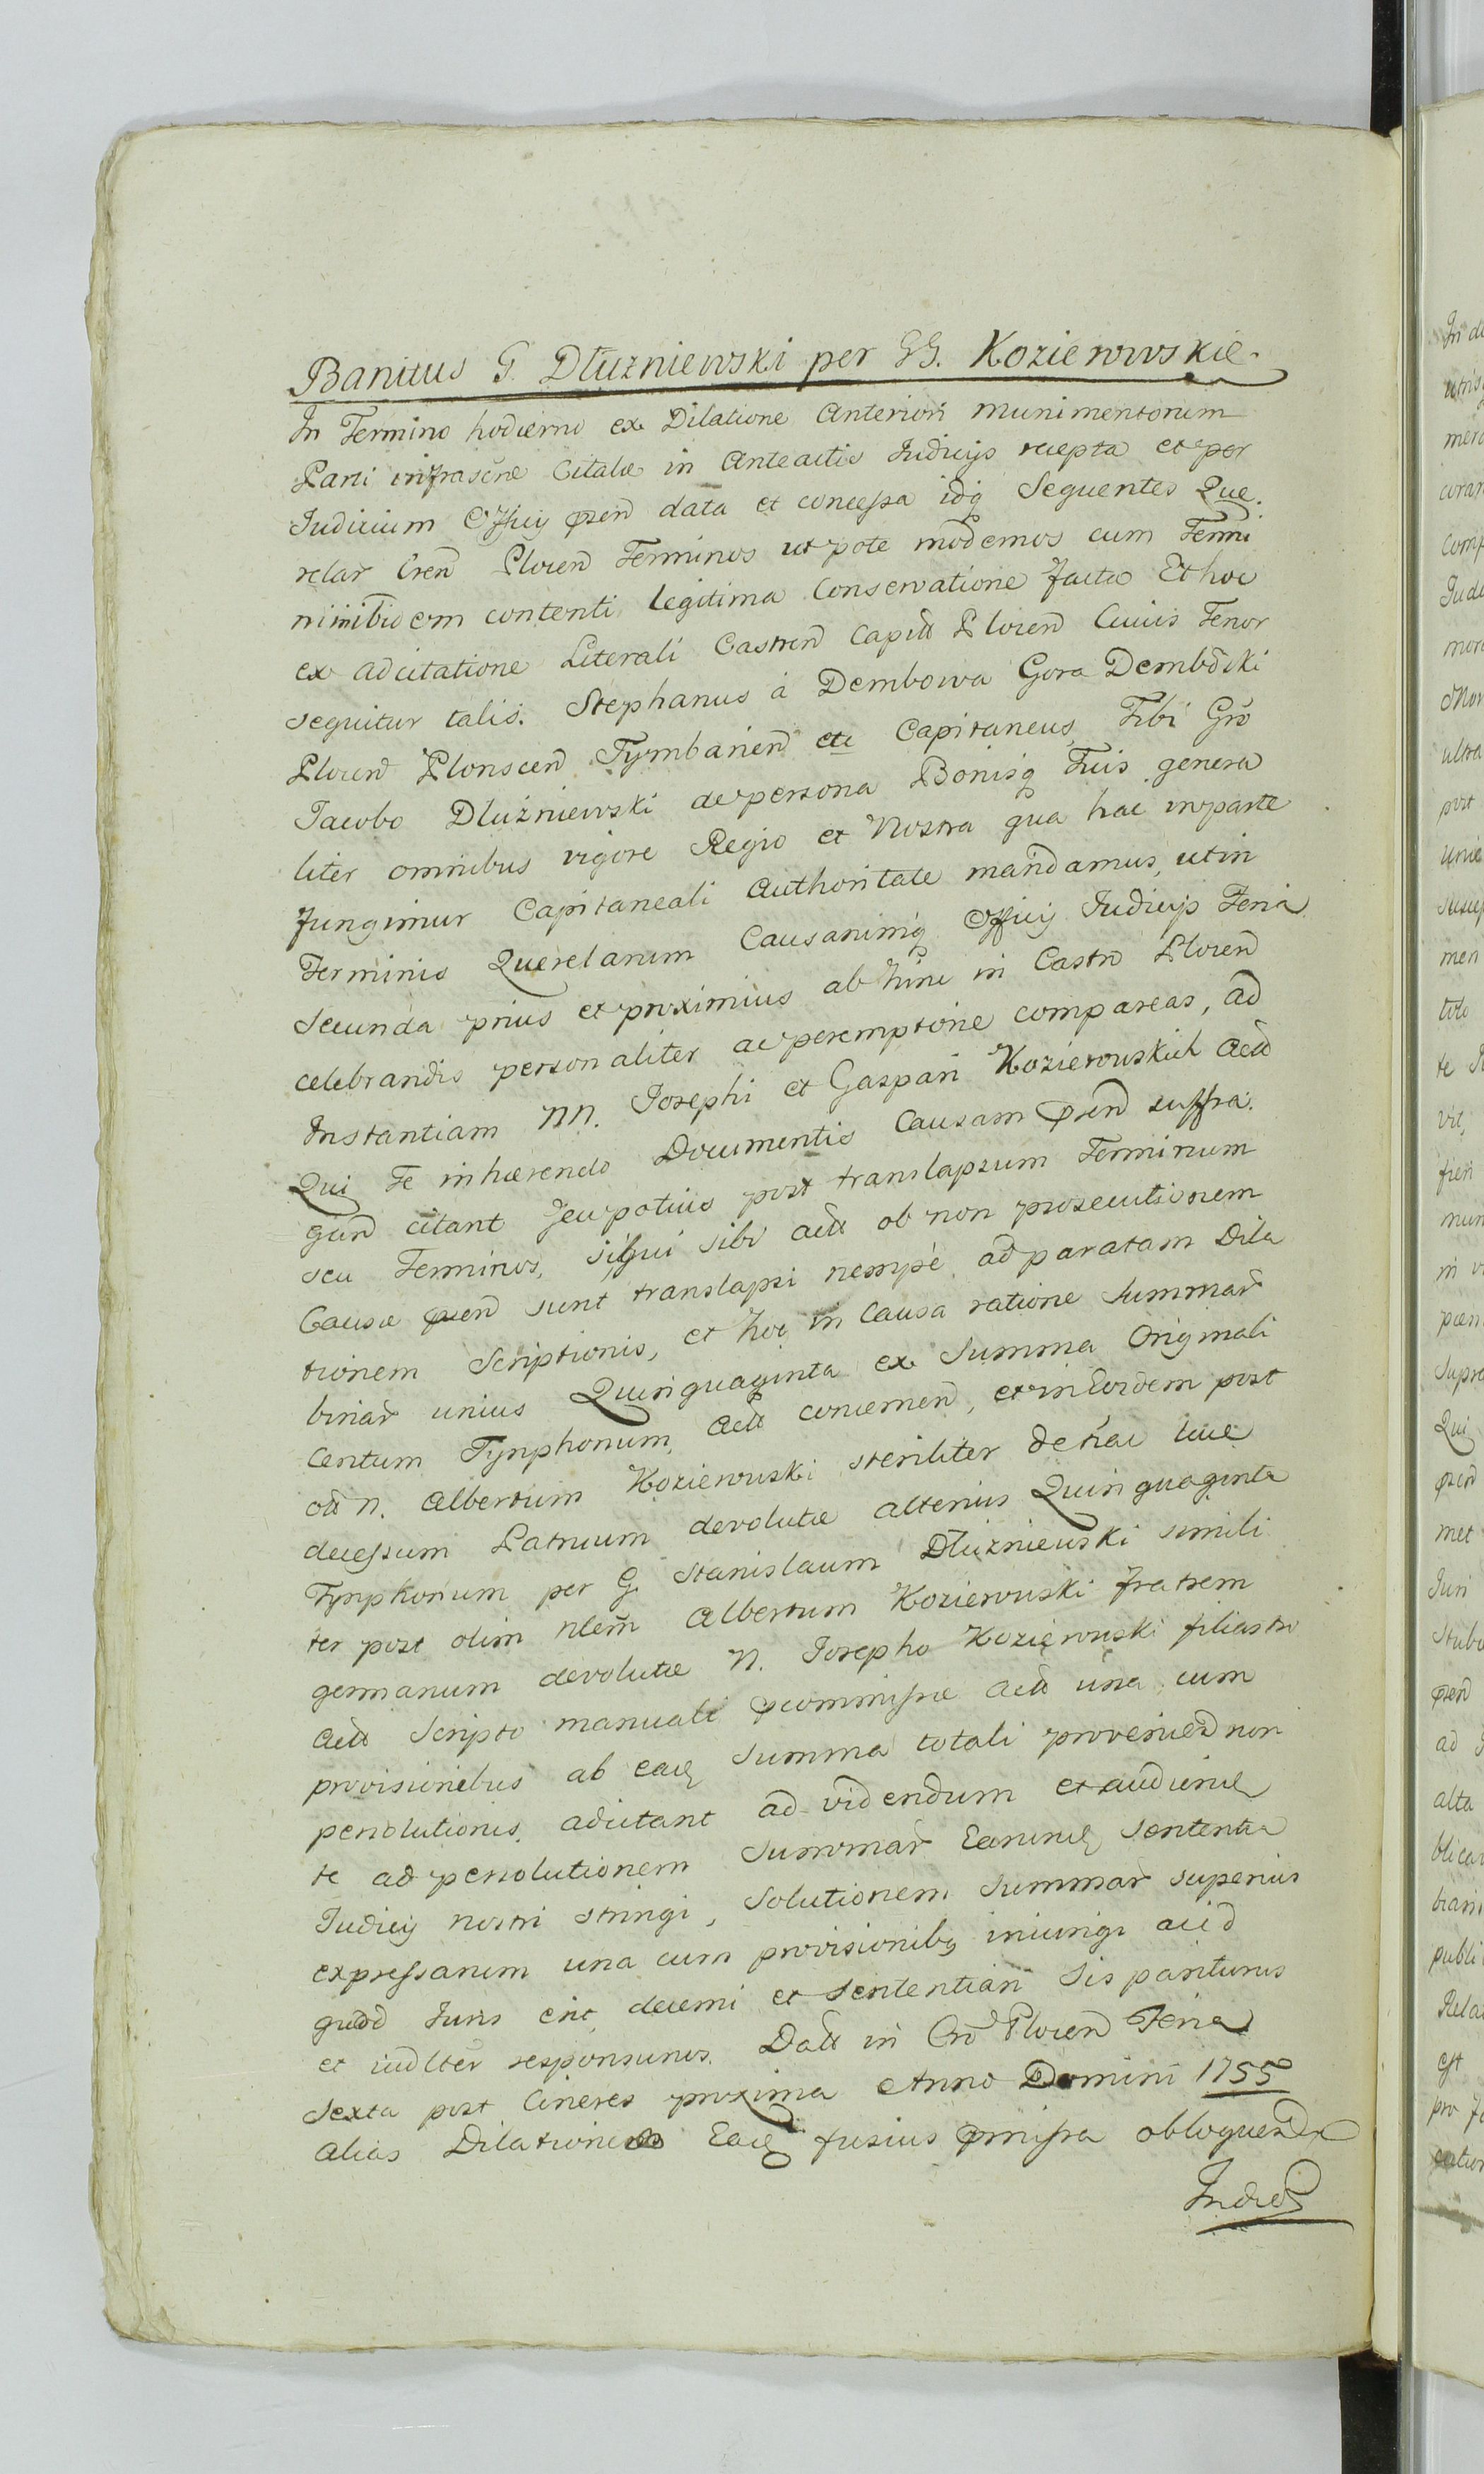 Banitus G. Dłużniewski per GG. Koziewwskie.
In Termino hodierno ex Dilatione Anteriori munimentorum
Parti infrascrae Citatae in Anteactis Judicijs recepta et per
Judicium Officij pren̄d data et concessa idq̨ Seguentes Que
relar Cren̄d Plocen̄d Terminos ut pote modernos cum Termi
nis ibidem contenti Legitima Conservatione facta Et hoc
ex adcitatione Literali Castren̄d Capitt Plocen̄d Cuius Tenor
sequitur talis. Stephanus à Dembowa Gora Dembōski
Plocen̄d Plonscen̄d Tymbarien̄d etc Capitaneus, Tibi Gr̄o
Jacobo Dłużniewski de persona Bonisq̨ Tuis genera
liter omnibus vigore Regio et Nostra qua hac in parte
fungimur Capitaneali Authoritate mandamus, ut in
Terminis Querelarum Causarumq̨ Officij Judicijs Feria
Secunda prius et proximius ab hinc in Castro Plocen̄d
celebrandis personaliter ac peremptorie compareas, ad
Instantiam NN. Josephi et Gaspari Koziewuskich Actt
Qui Te inhaerendo Documentis Causam pren̄d suffra.
gan̄d citant seu potius post translapsum Terminum
seu Terminos, siqui sibi actt ob non prosecutionem
Causae pren̄d sunt translapsi nempe ad paratam Dila
tionem Scriptionis, et hoc in Causa ratione Summar̄
binar̄ unius Quinquaginta ex Summa Originali
Centum Tynphonum, Actt concernen̄d, et in Eosdem post
ott N. Albertum Koziewuski steriliter de hac luce
decessum Patruum devolutae alterius Quinquaginta
Tynphonum per G. Stanislaum Dłużniewski simili
ter post olim Nlem̄ Albertum Koziewuski fratrem
germanum devolutae N. Josepho Koziewuski filiastro
Actt Scripto manuali promissae Actt una cum
provisionibus ab eaq̨ Summa totali provenien̄d non
persolutionis, adcitant ad videndum et audien̄q̨
te ad persolutionem Summar̄ Earun̄q̨ Sententia
Judicij nostri stringi, Solutionem Summar̄ superius
expressarum una cum provisionibq̨ iniungi aci̅d
quo̅d Juris erit, decerni et sententiari Sis pariturus
et iudlter responsurus. Datt in Cr̄o Plocen̄d Feria
Sexta post Cineres proxima Anno Domini 1755
alias Dilatione Eaq̨ fusius prmissa obloquen̄d